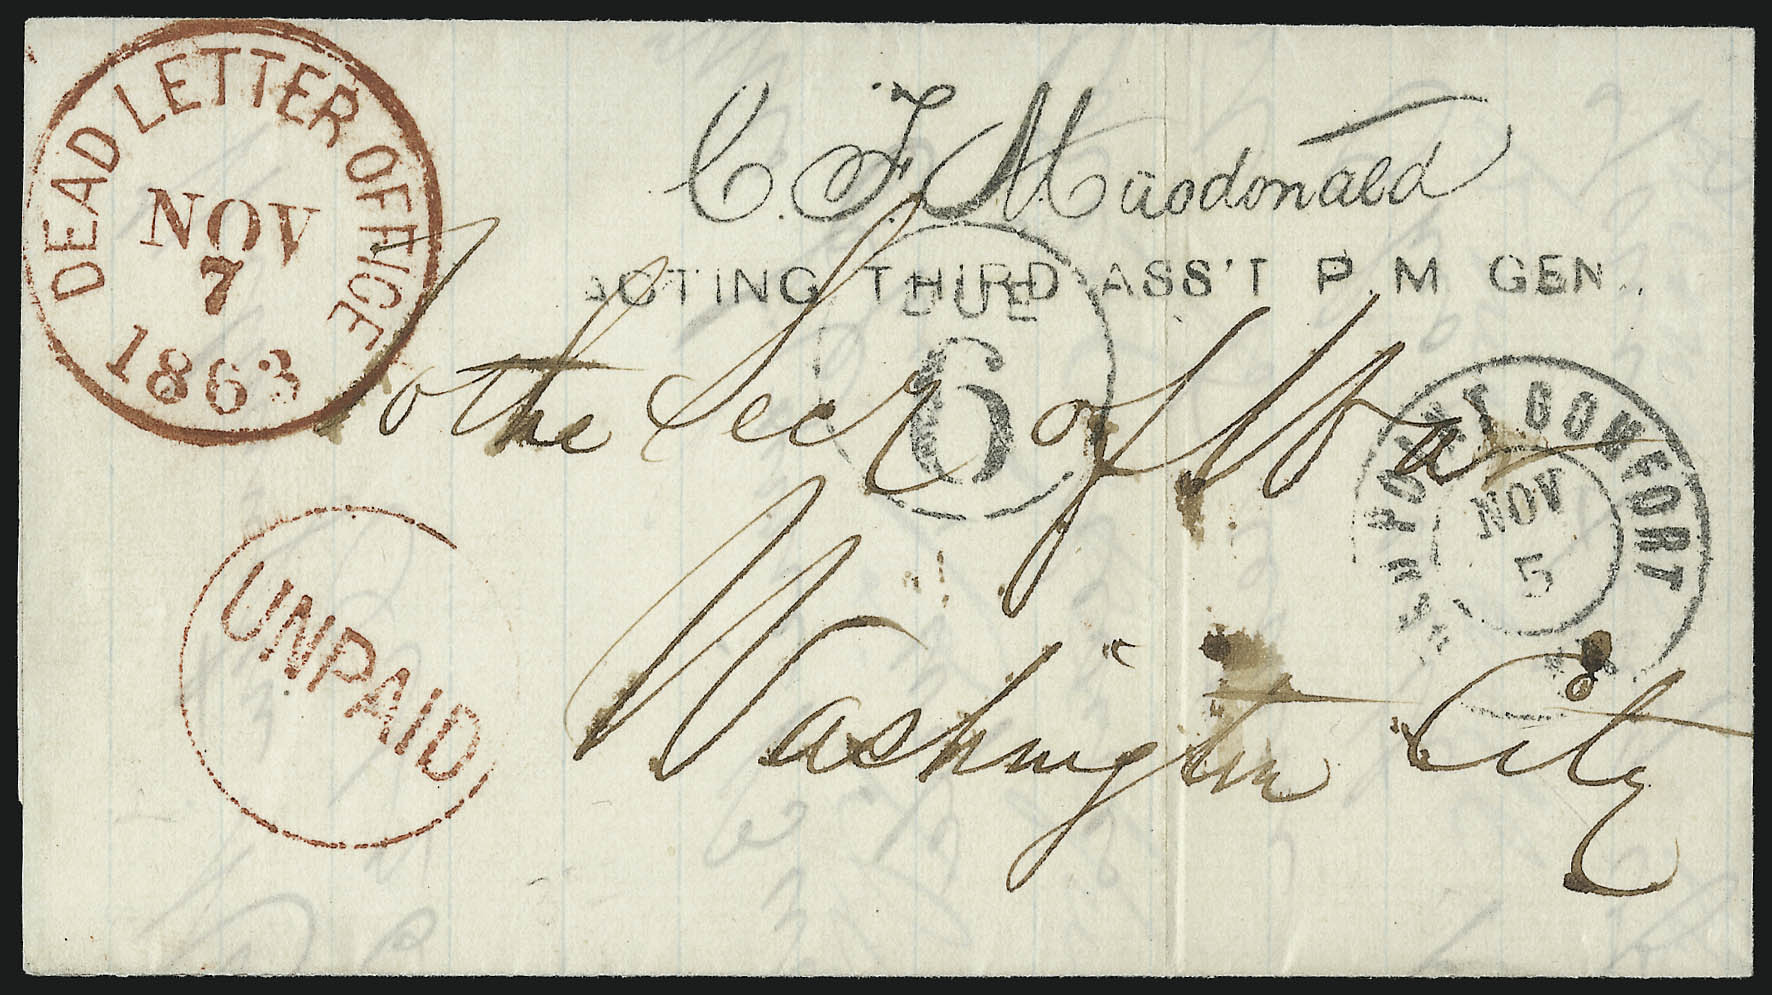 DEAD LETTER OFFICE
NOV
7
1863
C. F. Macdonald
ACTING THIRD ASS'T P. M GEN.
DUE
6
To the Secr of War
Washington City
POINT COMFORT
NOV
5
UNPAID